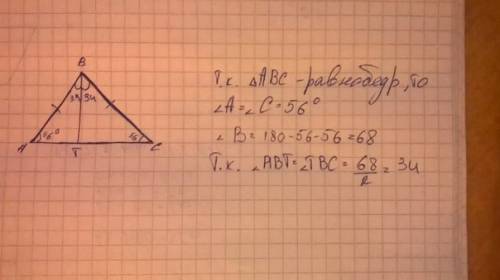 B
34 34
56° 56°
A T C
Т.к. △ABC - равнобедр, то
∠A = ∠C = 56°
∠B = 180-56-56 = 68
Т.к. ∠ABT = ∠TBC = 68/2 = 34